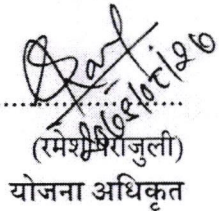 (रमेश पराजुली)
योजना अधिकृत